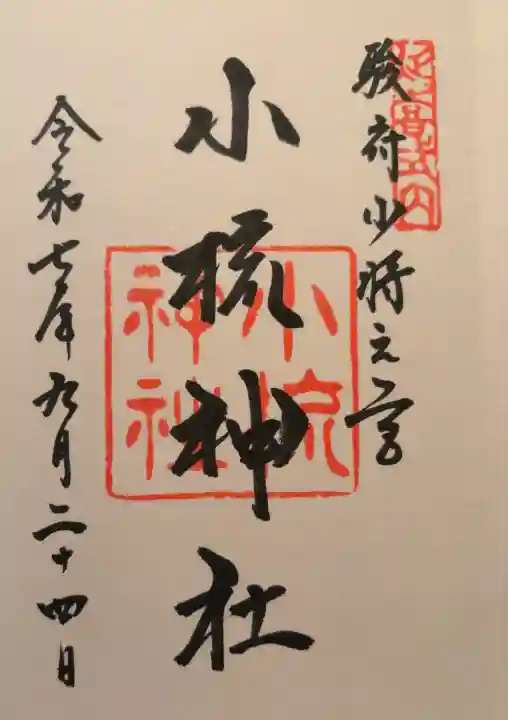 駿府少将之宮
小梳神社
小梳
神社
令和七年九月二十四日